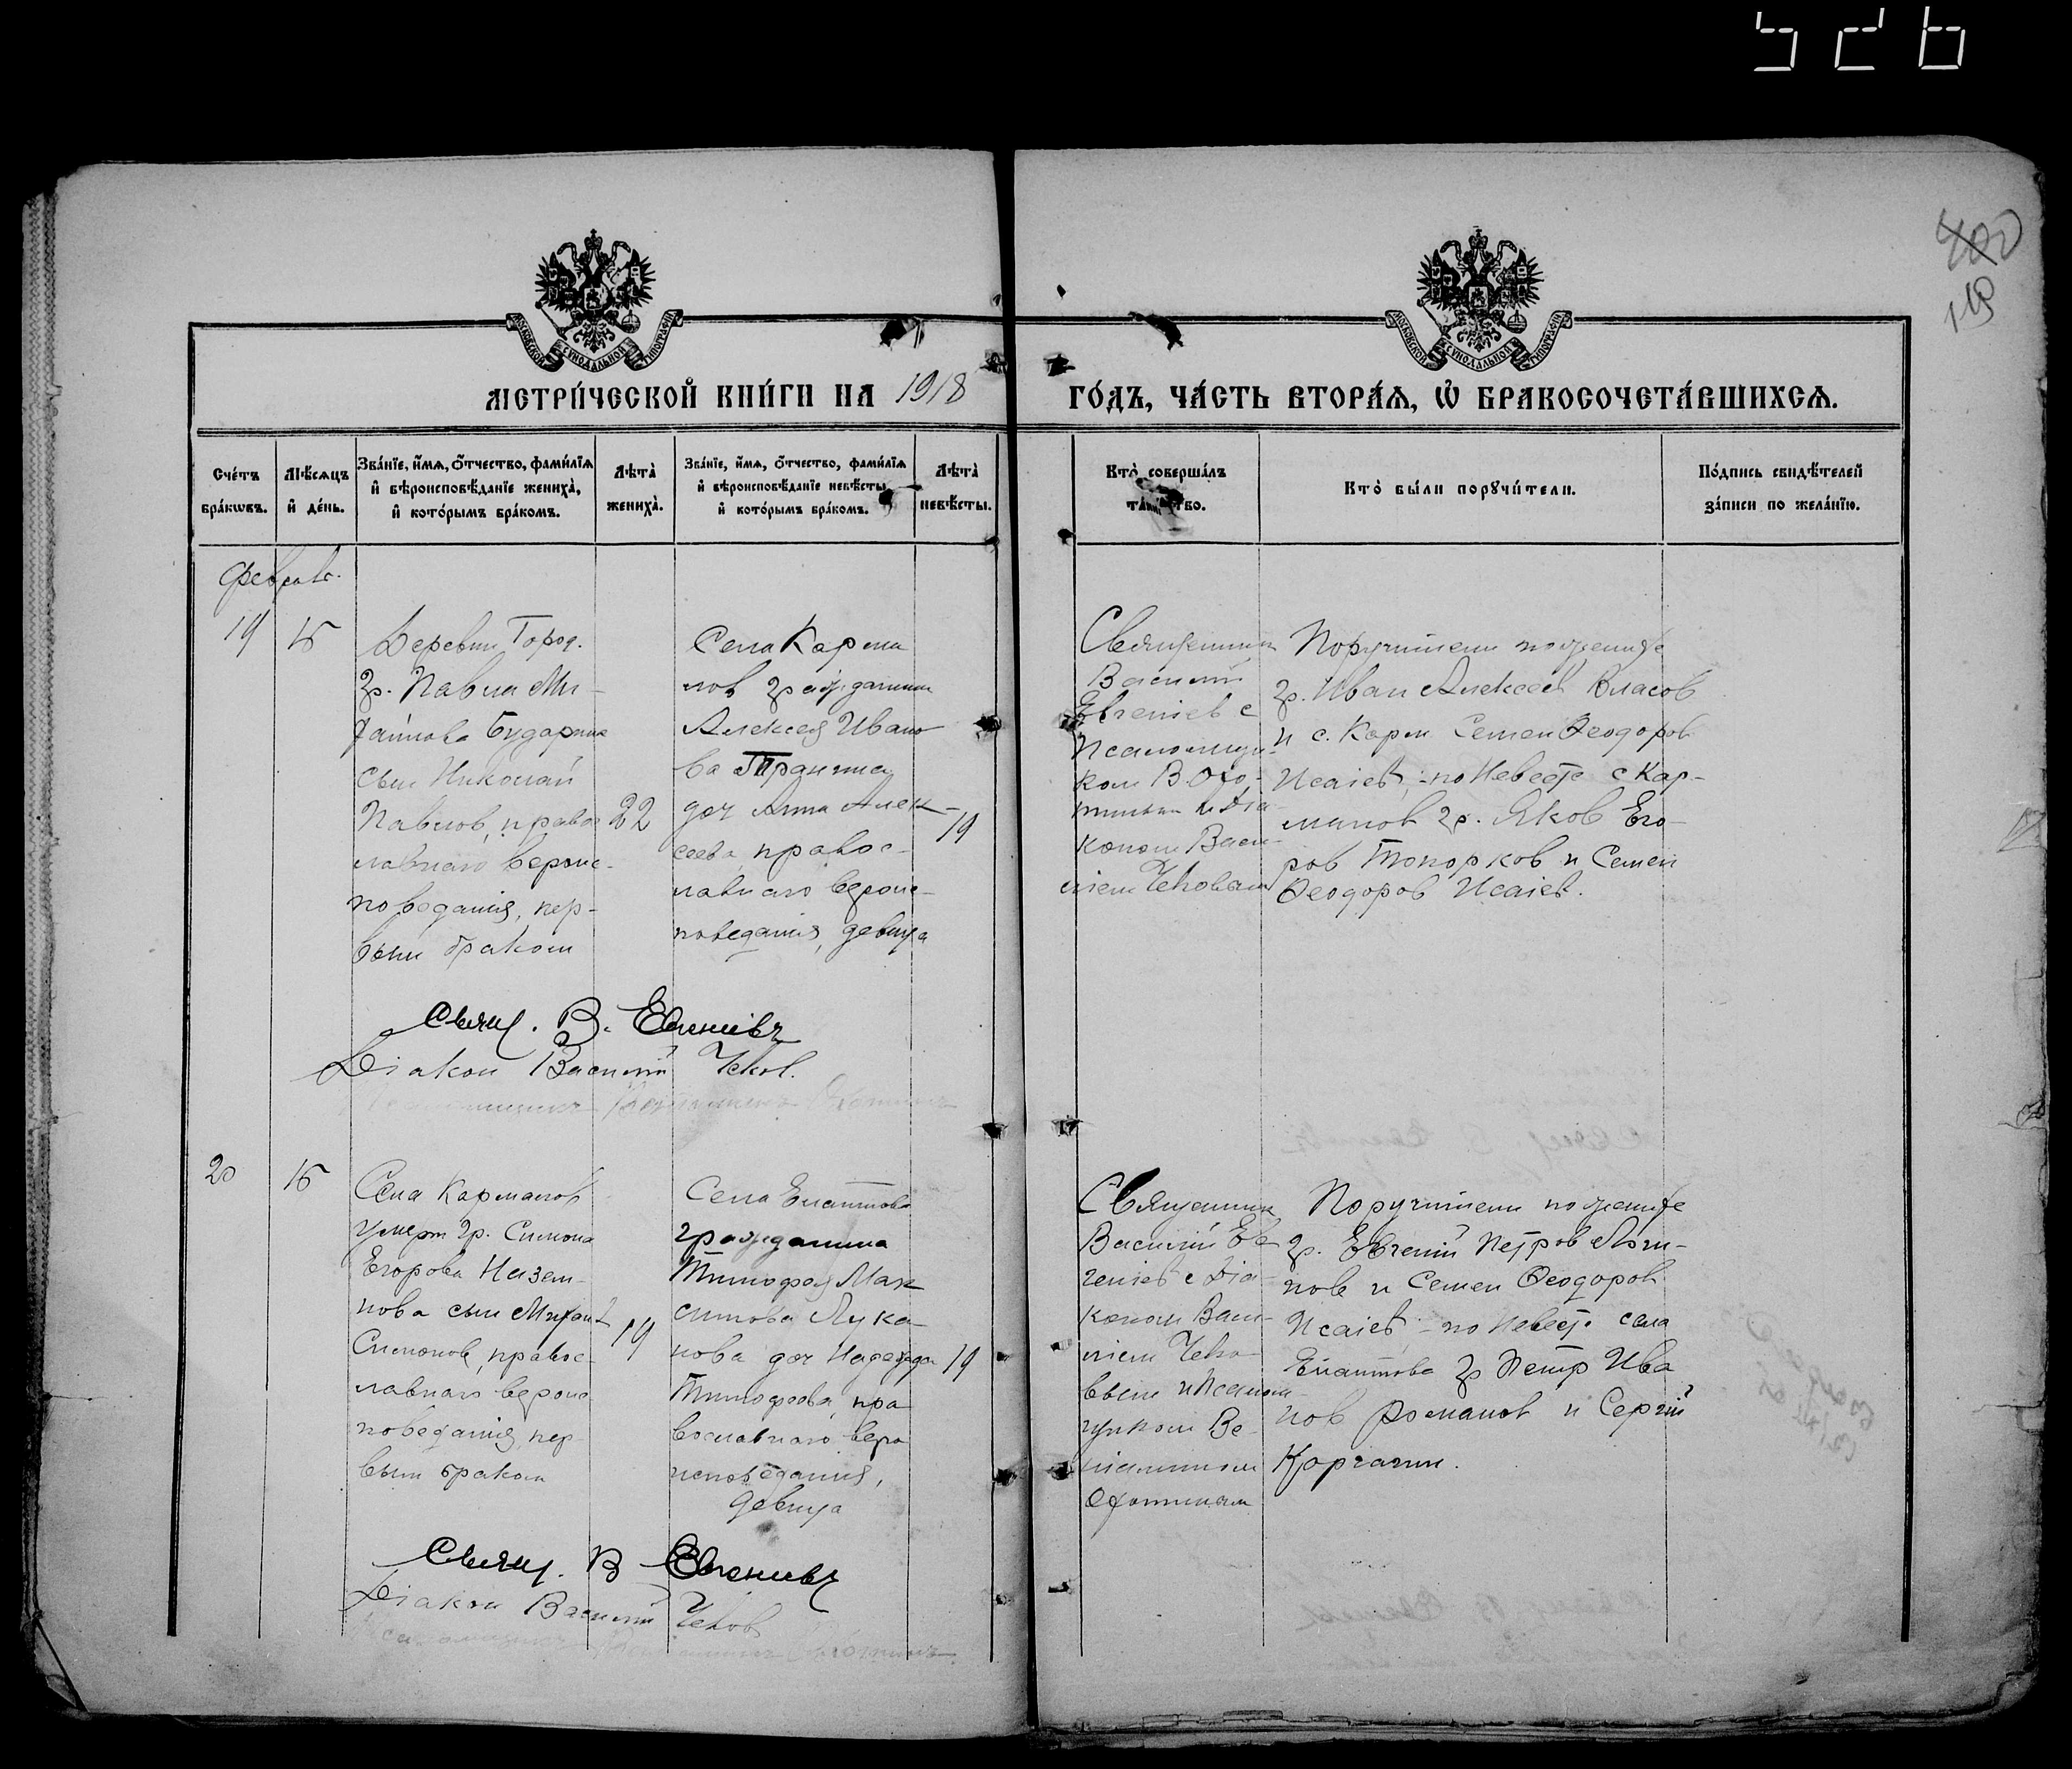 526
400
119
МОСКОВСКОЙ СѴНОДАЛЬНОЙ ТИПОГРАФІИ
МОСКОВСКОЙ СѴНОДАЛЬНОЙ ТИПОГРАФІИ
МЕТРИ́ЧЕСКОЙ КНИ́ГИ НА 1918 ГО́ДЪ, ЧА́СТЬ ВТОРА́Я, Ѽ БРАКОСОЧЕТА́ВШИХСЯ.
Сче́тъ бра́кωвъ.
Мѣ́сяцъ и҆ де́нь.
Зва́нїе, и҆́мя, ѻ҆́тчество, фами́лїя и҆ вѣроисповѣ́данїе жениха̀, и҆ кото́рымъ бра́комъ.
Лѣта̀ жениха̀.
Зва́нїе, и҆́мя, ѻ҆́тчество, фами́лїя и҆ вѣроисповѣ́данїе невѣ́сты, и҆ кото́рымъ бра́комъ.
Лѣта̀ невѣ́сты.
Кто̀ соверша́лъ та́инство.
Кто̀ бы́ли порꙋчи́тели.
По́дпись свидѣ́телей за́писи по жела́нїю.
Феврал.
19
15
Деревни Город.
гр. Павла Ми-
хайлова Бударина
сын Николай
Павлов, правос
лавнаго вероис-
поведания, пер-
вым браком
22
Села Карма
лов гражданина
Алексея Ивано
ва
доч Анна Алек-
сеева правос-
лавнаго вероис-
поведания, девица
19
Священник
Василий
Евгениев с
псаломщи-
ком В. Охо-
тиным и диа
коном Васи-
лием Чековым
Поручители по женихе
гр. Иван Алексеев Власов
и с. Карм Семен Феодоров
Исаiев, - по невесте с Кар-
малов гр. Яков Его-
ров Топорков и Семен
Феодоров Исаiев.
Свящ. В. Евгенiевъ
Дiакон Василий Чеков.
20
15
Села Кармалов
умерт гр. Симона
Егорова
нова сын Михаил
Симонов, правос-
лавнаго вероис
поведания, пер
вым браком
19
Села Елаптова
гражданина
Тимофея Мак
симова Лука-
нова доч Надежда
Тимофеева, пра
вославнаго веро
исповедания,
девица
19
Священник
Василий Ев
гениев с диа-
коном Васи-
лием Чеко-
вым и псалом-
щиком Ве-
ниамином
Охотиным
Поручители по женихе
гр. Евгений Петров Логи-
нов и Семен Феодоров
Исаiев - по невесте села
Елаптова гр Петр Ива
нов Романов и Сергий
Каргагин.
Свящ. В Евгенiевъ
Дiакон Василий Чеков
Псаломщикъ Венiаминъ Охотинъ